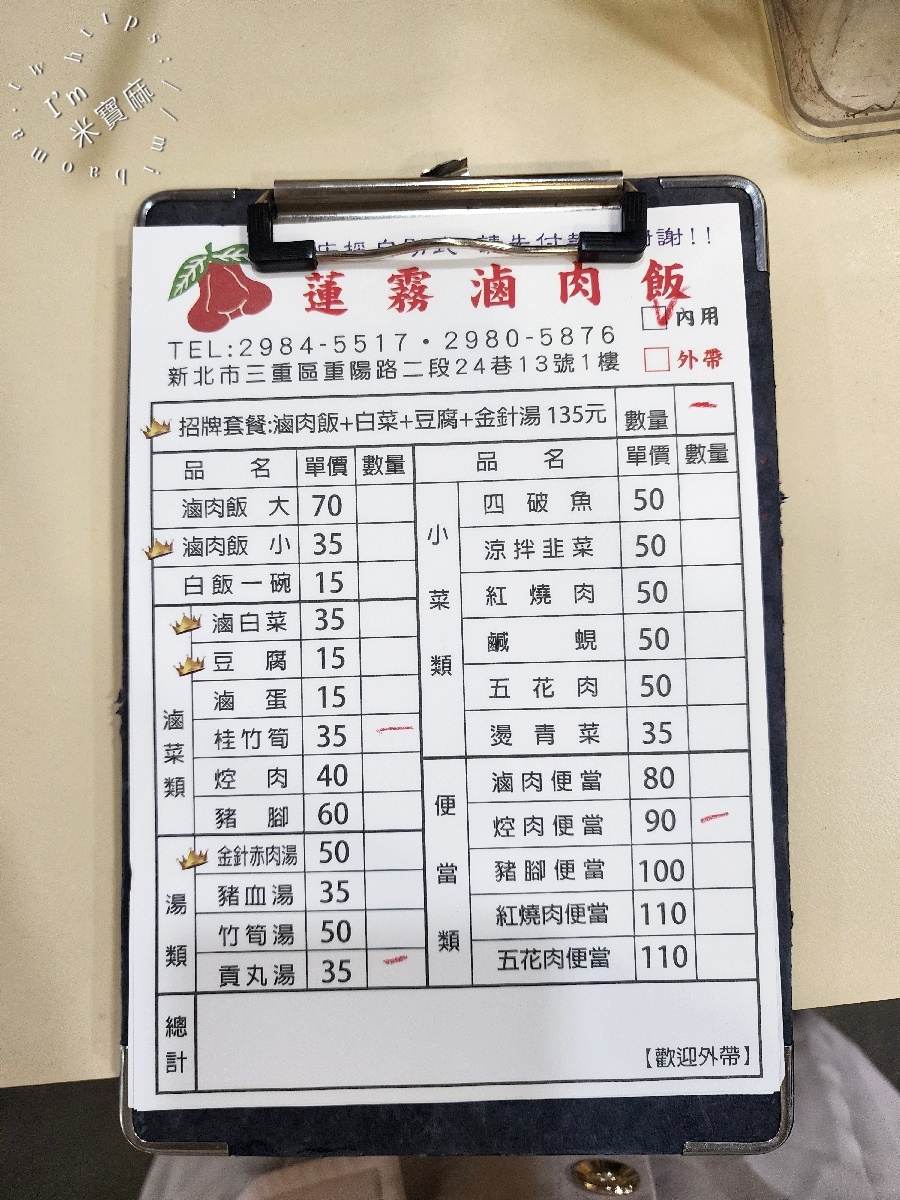 I'm
米寶麻
https://mibaoma.tw
請先付 謝!!
蓮霧滷肉飯
內用
TEL:2984-5517・2980-5876
外帶
新北市三重區重陽路二段24巷13號1樓
招牌套餐:滷肉飯+白菜+豆腐+金針湯 135元 數量 一
品名 單價 數量
滷肉飯 大 70
滷肉飯 小 35
白飯一碗 15
滷菜類
滷白菜 35
豆腐 15
滷蛋 15
桂竹筍 35 一
焢肉 40
豬腳 60
湯類
金針赤肉湯 50
豬血湯 35
竹筍湯 50
貢丸湯 35 一
品名 單價 數量
小菜類
四破魚 50
涼拌韭菜 50
紅燒肉 50
鹹蜆 50
五花肉 50
燙青菜 35
便當類
滷肉便當 80
焢肉便當 90 一
豬腳便當 100
紅燒肉便當 110
五花肉便當 110
總計
【歡迎外帶】